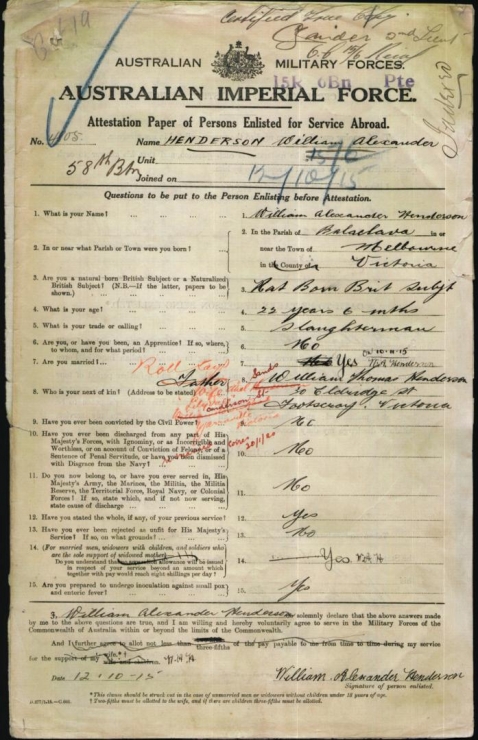 Certified True Copy
AUSTRALIAN MILITARY FORCES.
Pte
AUSTRALIAN IMPERIAL FORCE.
Attestation Paper of Persons Enlisted for Service Abroad.
No. Name HENDERSON William Alexander
58th Bn Unit
Joined on 12/10/15
Questions to be put to the Person Enlisting before Attestation.
1. What is your Name? 1. William Alexander Henderson
2. In or near what Parish or Town were you born? 2. In the Parish of Balaclava in or
near the Town of Melbourne
in the County of Victoria
3. Are you a natural born British Subject or a Naturalized
British Subject? (N.B.—If the latter, papers to be
shown.) 3. Nat Born Brit Subjt
4. What is your age? 4. 22 years 6 mths
5. What is your trade or calling? 5. Slaughterman
6. Are you, or have you been, an Apprentice? If so, where,
to whom, and for what period? 6. No
7. Are you married? 7. Yes 10.11.15
W.A. Henderson
8. Who is your next of kin? (Address to be stated) Father 8. William Thomas Henderson
30 Eldridge St
Footscray. Victoria
9. Have you ever been convicted by the Civil Power? 9. No
10. Have you ever been discharged from any part of His
Majesty's Forces, with Ignominy, or as Incorrigible and
Worthless, or on account of Conviction of Felony, or of a
Sentence of Penal Servitude, or have you been dismissed
with Disgrace from the Navy? 10. No
11. Do you now belong to, or have you ever served in, His
Majesty's Army, the Marines, the Militia, the Militia
Reserve, the Territorial Force, Royal Navy, or Colonial
Forces? If so, state which, and if not now serving,
state cause of discharge 11. No
12. Have you stated the whole, if any, of your previous service? 12. Yes
13. Have you ever been rejected as unfit for His Majesty's
Service? If so, on what grounds? 13. No
14. (For married men, widowers with children, and soldiers who
are the sole support of widowed mother)
Do you understand that no separation allowance will be issued
in respect of your service beyond an amount which
together with pay would reach eight shillings per day? 14. Yes
15. Are you prepared to undergo inoculation against small pox
and enteric fever? 15. Yes
I, William Alexander Henderson solemnly declare that the above answers made
by me to the above questions are true, and I am willing and hereby voluntarily agree to serve in the Military Forces of the
Commonwealth of Australia within or beyond the limits of the Commonwealth.
And I further agree to allot not less than three-fifths of the pay payable to me from time to time during my service
for the support of my wife.*
Date 12-10-15 William Alexander Henderson
Signature of person enlisted.
*This clause should be struck out in the case of unmarried men or widowers without children under 18 years of age.
† Two-fifths must be allotted to the wife, and if there are children three-fifths must be allotted.